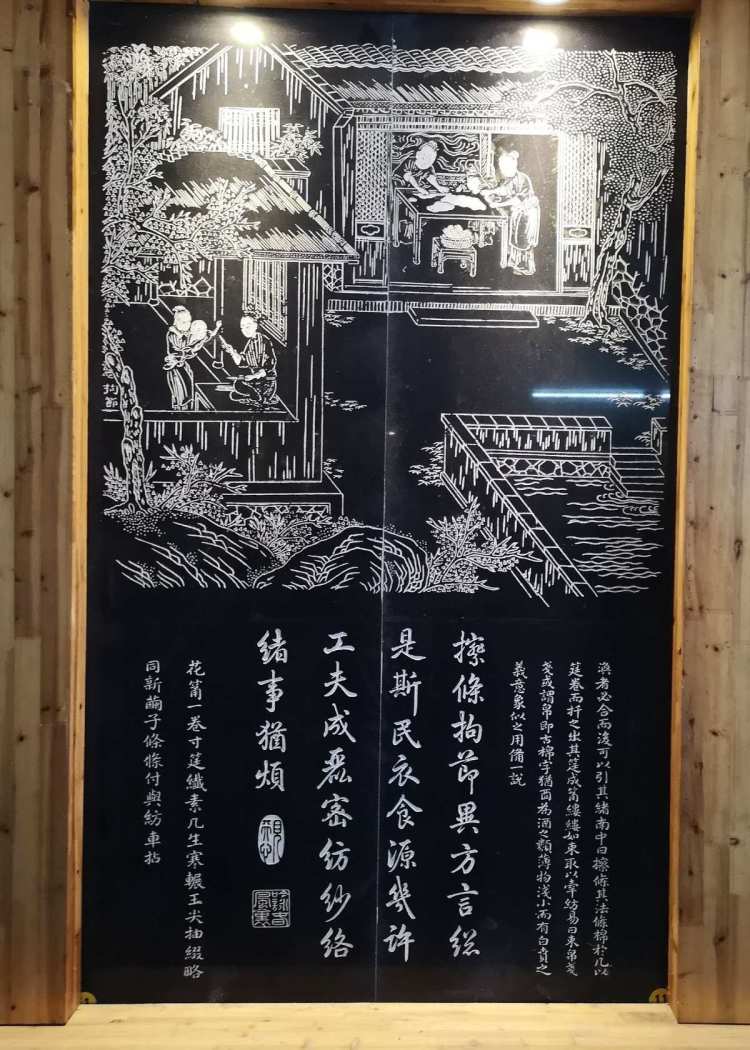 拘節
渙者必合而後可以引其緒南中曰擦條其法條棉於几以
筳卷而扞之出其筳成筩縷縷如束取以牽紡易曰束帛戔
戔或謂帛即古棉字猶酉為酒之類薄物淺小而有白賁之
義意象似之用備一說
擦條拘節異方言総
是斯民衣食源幾許
工夫成密紡紗絡
緒事猶煩
花筩一卷寸筳纖素几生寒輾玉尖抽綴略
同新繭子條條付與紡車拈